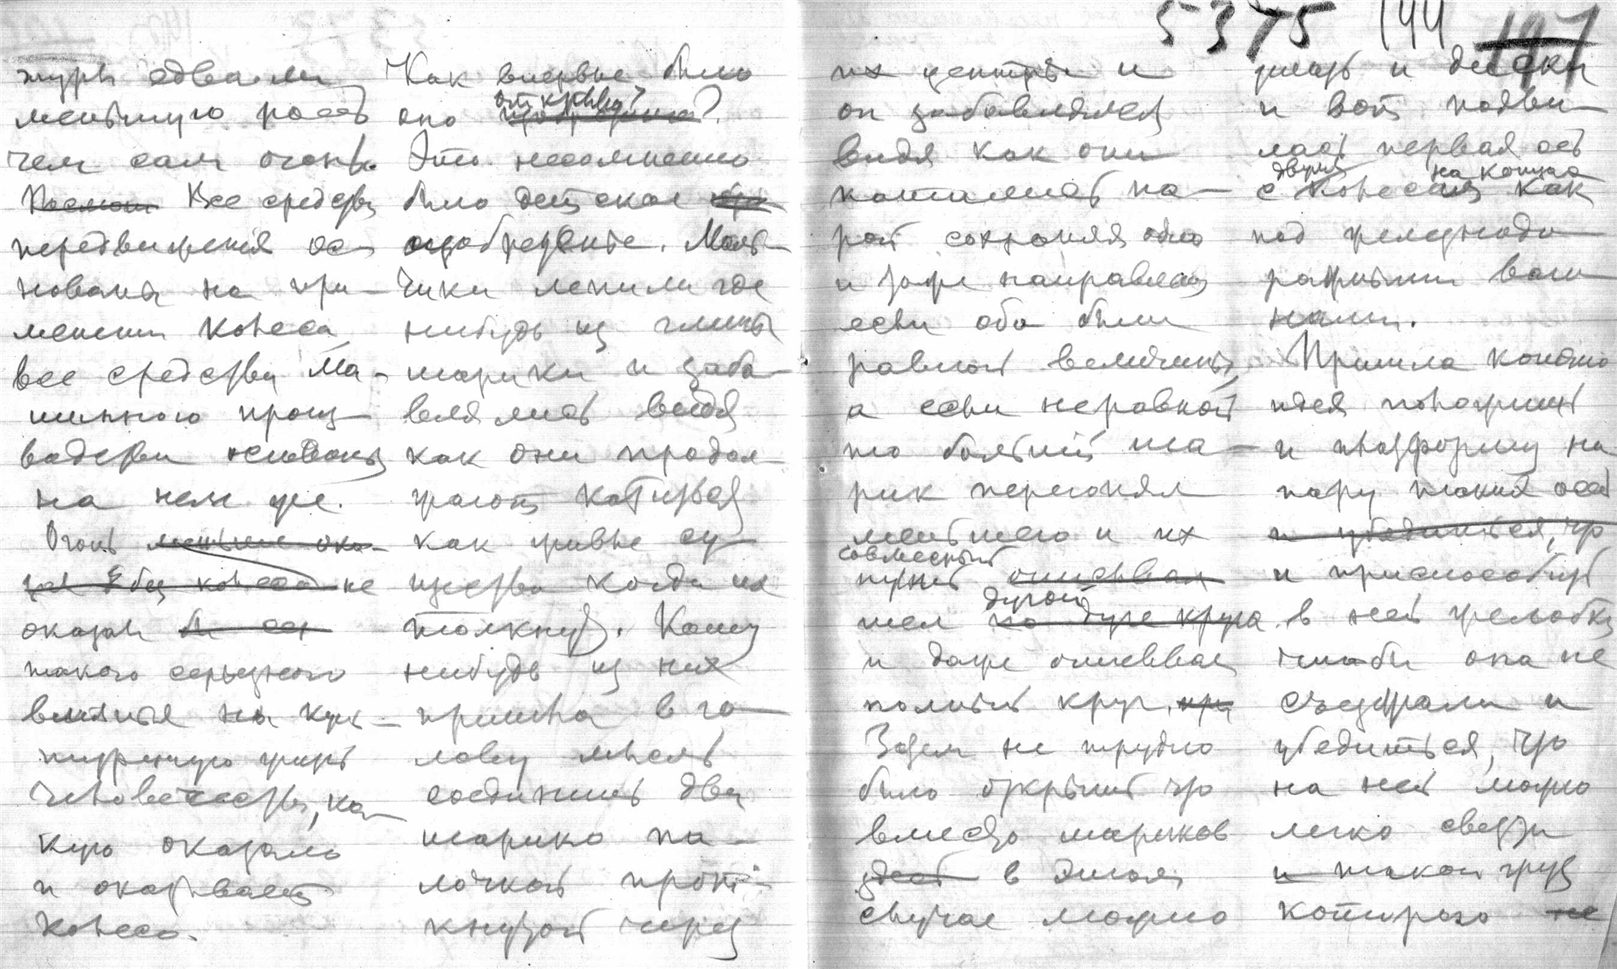 5375 144 197
туры едва ли
меньшую роль
чем сам огонь.
Все средства
передвижения ос-
нованы на при-
менении колеса
все средства ма-
шинного произ-
водства основаны
на нем же.
Огонь меньше ока-
не
оказал бы
такого серьезного
влияния на куль-
турную жизнь
человечества, ка-
кую оказало
и оказывает
колесо.
Как впервые было
открыто?
оно изобретено?
Это несомненно
было детское
изобретение. Маль-
чики лепили где
нибудь из глины
шарики и заба-
влялись видя
как они продол-
жают катиться
как живые су-
щества когда их
толкнут. Кому
нибудь из них
пришла в го-
лову мысль
соединить два
шарика па-
лочкой протк-
кнутой через
их центры и
он забавлялся
видя как они
катились па-
рой сохраняя одно
и то же направление
если оба были
равной величины,
а если неравной
то больший ша-
рик перегонял
меньшего и их
совместный
путь описывал
дугой
шел по дуге круга
и даже описывал
полный круг. при
Затем не трудно
было открыть что
вместо шариков
в этом
случае можно
делать и диски
и вот появи-
лась первая ось
двумя на концах
с колесами как
под железнодо-
рожными ваго-
нами.
Пришла конечно
идея положить
и платформу на
пару таких осей
и убедиться, что
и приспособить
в ней желобки
чтобы она не
съезжала и
убедиться, что
на ней можно
легко свезти
и такой груз
которого не